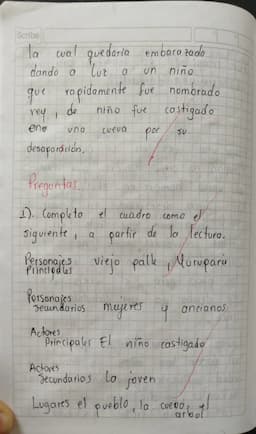 Scribe
la cual quedaria embarazado
dando a luz a un niño
que rapidamente fue nombrado
rey, de niño fue castigado
ene una cueva por su
desaparición.
Preguntas.
1). Completo el cuadro como el
siguiente, a partir de la lectura.
Personajes Principales viejo palk, Murupara
Personajes Secundarios mujeres y ancianos
Actores Principales El niño castigado
Actores Secundarios La joven
Lugares el pueblo, la cueva, el
arbol